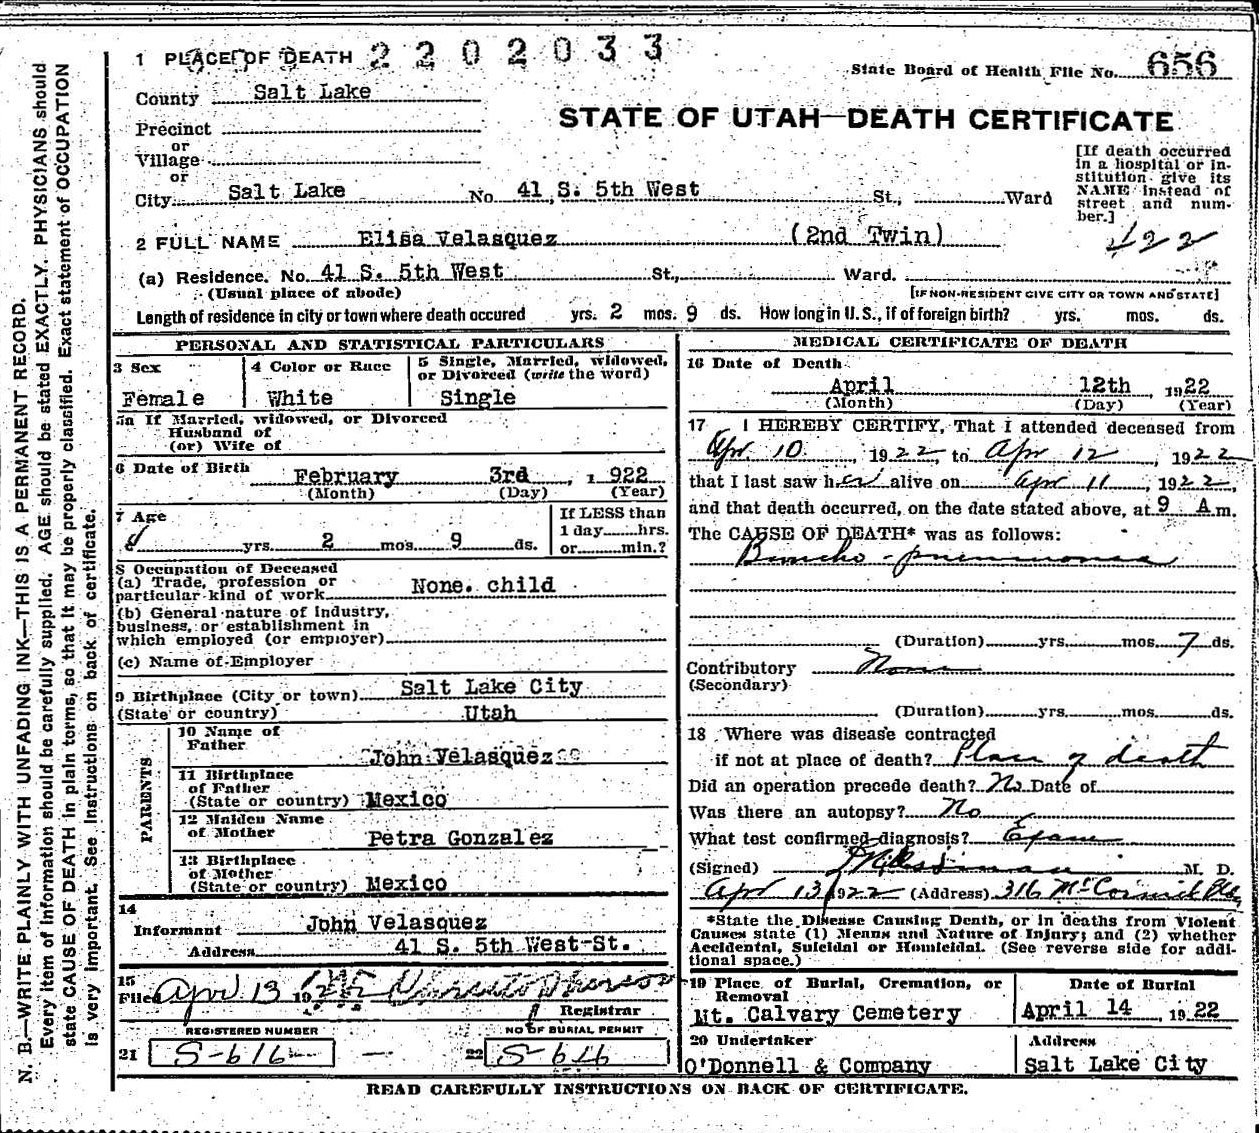 1 PLACE OF DEATH 2202033
State Board of Health File No. 656
County Salt Lake
STATE OF UTAH—DEATH CERTIFICATE
Precinct
or
Village
or
City Salt Lake No. 41 S. 5th West St., Ward
[If death occurred
in a hospital or in-
stitution give its
NAME instead of
street and num-
ber.]
2 FULL NAME Elisa Velasquez (2nd Twin)
(a) Residence. No. 41 S. 5th West St., Ward.
(Usual place of abode) [IF NON-RESIDENT GIVE CITY OR TOWN AND STATE]
Length of residence in city or town where death occured yrs. 2 mos. 9 ds. How long in U. S., if of foreign birth? yrs. mos. ds.
PERSONAL AND STATISTICAL PARTICULARS
3 Sex
Female
4 Color or Race
White
5 Single, Married, widowed,
or Divorced (write the word)
Single
5a If Married, widowed, or Divorced
Husband of
(or) Wife of
6 Date of Birth
February 3rd, 1922
(Month) (Day) (Year)
7 Age
yrs. 2 mos. 9 ds.
If LESS than
1 day hrs.
or min.?
8 Occupation of Deceased
(a) Trade, profession or
particular kind of work None. child
(b) General nature of Industry,
business, or establishment in
which employed (or employer)
(c) Name of Employer
9 Birthplace (City or town) Salt Lake City
(State or country) Utah
PARENTS
10 Name of
Father John Velasquez
11 Birthplace
of Father
(State or country) Mexico
12 Maiden Name
of Mother Petra Gonzalez
13 Birthplace
of Mother
(State or country) Mexico
14
Informant John Velasquez
Address 41 S. 5th West St.
15
Filed Apr 13 19
Registrar
REGISTERED NUMBER NO OF BURIAL PERMIT
21 S-616 22 S-616
MEDICAL CERTIFICATE OF DEATH
16 Date of Death
April 12th, 1922
(Month) (Day) (Year)
17 I HEREBY CERTIFY, That I attended deceased from
Apr 10, 1922, to Apr 12, 1922
that I last saw her alive on Apr 11, 1922,
and that death occurred, on the date stated above, at 9 A m.
The CAUSE OF DEATH* was as follows:
Broncho-pneumonia
(Duration) yrs. mos. 7 ds.
Contributory None
(Secondary)
(Duration) yrs. mos. ds.
18 Where was disease contracted
if not at place of death? Place of death
Did an operation precede death? No Date of
Was there an autopsy? No
What test confirmed diagnosis? Exam
(Signed) M. D.
Apr 13 1922 (Address) 316 McCornick Bldg
*State the Disease Causing Death, or in deaths from Violent
Causes state (1) Means and Nature of Injury; and (2) whether
Accidental, Suicidal or Homicidal. (See reverse side for addi-
tional space.)
19 Place of Burial, Cremation, or
Removal
Mt. Calvary Cemetery
Date of Burial
April 14, 1922
20 Undertaker
O'Donnell & Company
Address
Salt Lake City
READ CAREFULLY INSTRUCTIONS ON BACK OF CERTIFICATE.
N. B.—WRITE PLAINLY WITH UNFADING INK—THIS IS A PERMANENT RECORD.
Every item of information should be carefully supplied. AGE should be stated EXACTLY. PHYSICIANS should
state CAUSE OF DEATH in plain terms, so that it may be properly classified. Exact statement of OCCUPATION
is very important. See instructions on back of certificate.